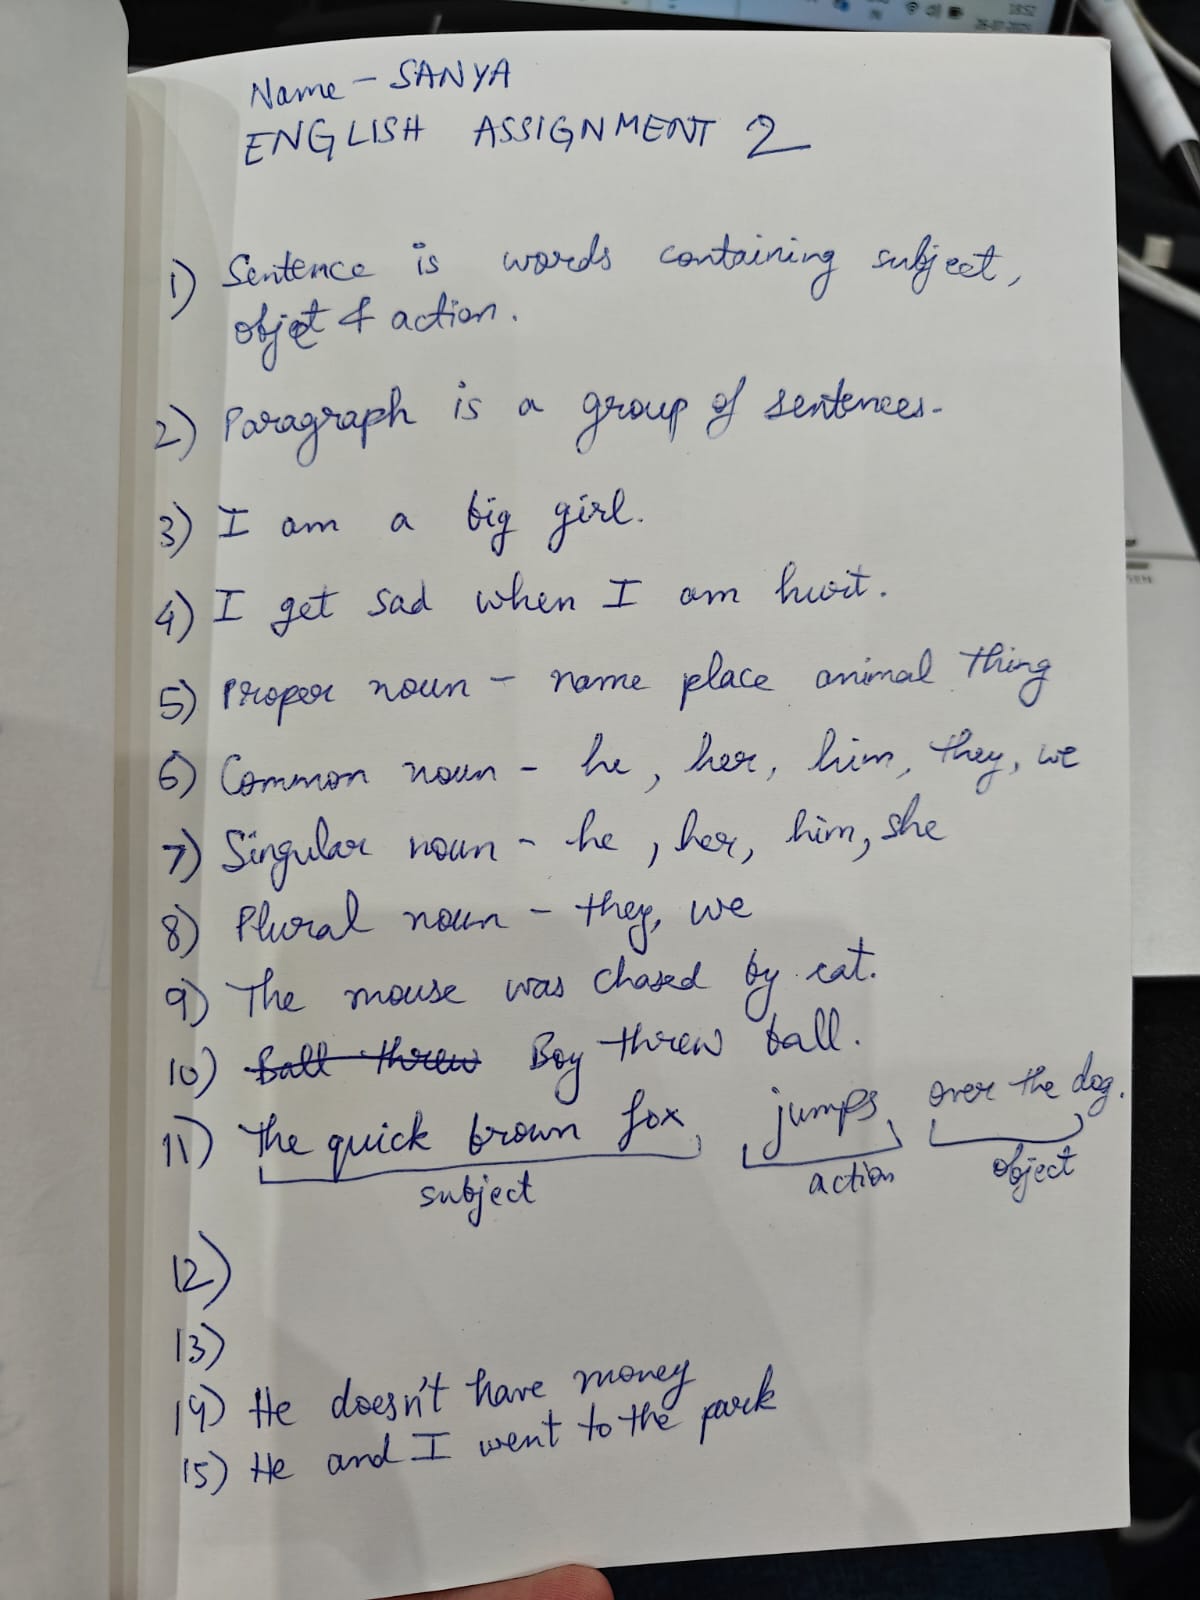 18:52
Name - SANYA
ENGLISH ASSIGNMENT 2
1) Sentence is words containing subject,
objet & action.
2) Paragraph is a group of sentences.
3) I am a big girl.
4) I get sad when I am hurt.
5) Proper noun - name place animal thing
6) Common noun - he, her, him, they, we
7) Singular noun - he, her, him, she
8) Plural noun - they, we
9) The mouse was chased by cat.
10) Ball threw Boy threw ball.
11) The quick brown fox jumps over the dog.
subject action object
12)
13)
14) He doesn't have money
15) He and I went to the park